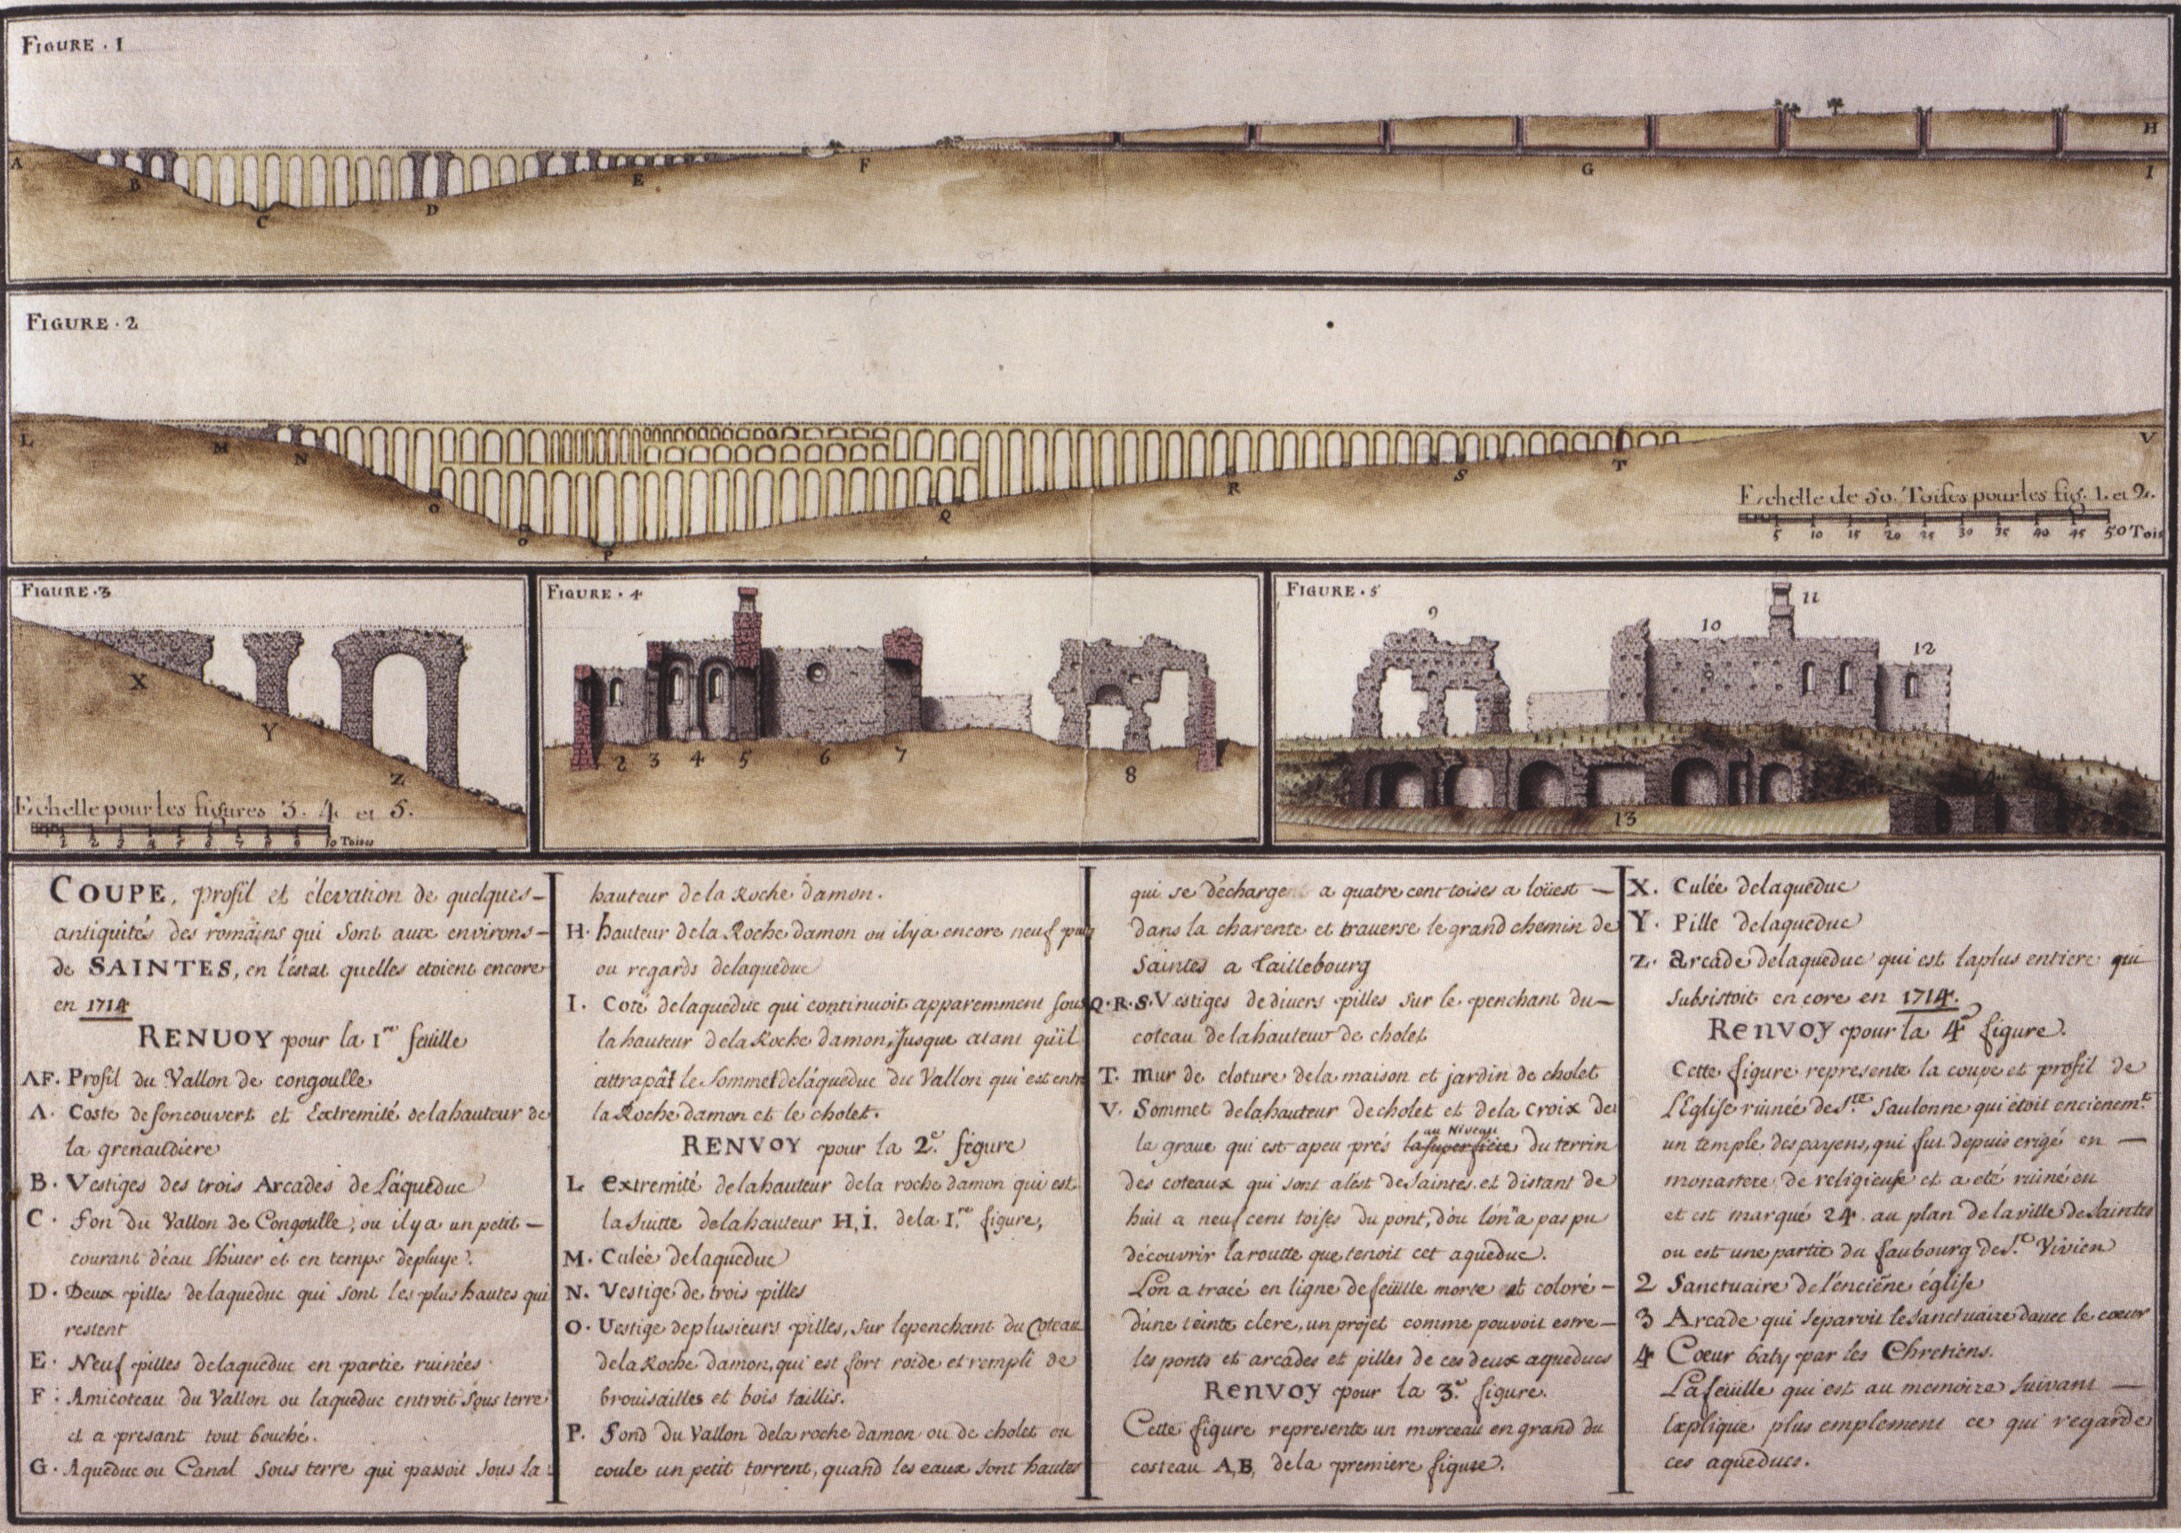 FIGURE . 1
A
B
C
D
E
F
G
H
I
FIGURE . 2
L
M
N
O
O
P
Q
R
S
T
V
Echelle de 50. Toises pour les fig. 1. et 2.
5 10 15 20 25 30 35 40 45 50 Tois
FIGURE . 3
X
Y
Z
Echelle pour les figures 3. 4 et 5.
1 2 3 4 5 6 7 8 9 10 Toises
FIGURE . 4
2 3 4 5 6 7 8
FIGURE . 5
9
10
11
12
13
COUPE, profil et élevation de quelques-
antiquités des romains qui sont aux environs-
de SAINTES, en l'éstat quelles etoient encore
en 1714
RENUOY pour la 1re feüille
AF. Profil du Vallon de congoulle
A. Coste de foncouvert et Extremité delahauteur de
la grenaudiere
B. Vestiges des trois Arcades de L'áqueduc
C. fon du Vallon de Congoulle, ou ilya un petit -
courant déau Lhiuer et en temps depluye.
D. Deux pilles delaqueduc qui sont les plus hautes qui
restent
E. Neuf pilles delaqueduc en partie ruinées.
F. Amicoteau du Vallon ou laqueduc entroit sous terre
et a presant tout bouché.
G. Aqueduc ou Canal sous terre qui passoit sous la
hauteur dela Roche damon.
H. hauteur dela Roche damon ou ilya encore neuf puis
ou regards delaqueduc
I. Coté delaqueduc qui continuoit apparemment sous
la hauteur dela Roche damon, Jusque atant qu'il
attrapât le sommet delâqueduc du Vallon qui est entre
la Roche damon et le cholet.
RENVOY pour la 2e. figure
L extremité delahauteur dela roche damon qui est
la suitte delahauteur H, I. dela I.re figure,
M. Culée delaqueduc
N. Vestige de trois pilles
O. Uestige deplusieurs pilles, sur lepenchant du Coteau
dela Roche damon, qui est fort roide et rempli de
brouisailles et bois taillis.
P. Fond du Vallon dela roche damon ou de cholet ou
coule un petit torrent, quand les eaux sont hautes
qui se déchargent a quatre cent toises a loüest -
dans la charente et trauerse le grand chemin de
Saintes a Taillebourg
Q. R. S. Vestiges de diuers pilles sur le penchant du-
coteau de lahauteur de cholet
T. mur de cloture dela maison et jardin de cholet
V. Sommet delahauteur decholet et dela croix de
la graue qui est apeu prés la superficie au Niveau du terrin
des coteaux qui sont alést de Saintes. et distant de
huit a neuf cent toises du pont, dóu lón'a pas pu
découvrir laroutte que tenoit cet aqueduc.
Lón a tracé en ligne de feüille morte et coloré -
dúne teinte clere, un projet comme pouvoit estre -
les ponts et arcades et pilles de ces deux aqueducs
Renvoy pour la 3e. figure.
Cette figure represente un morceau en grand du
costeau A,B, dela premiere figure.
X. Culée delaqueduc
Y. Pille delaqueduc
Z. arcade delaqueduc qui est laplus entiere qui
subsistoit encore en 1714.
Renvoy pour la 4e figure.
Cette figure represente la coupe et profil de
LÉglise ruinée de Ste. Saulonne qui étoit encienemt.
un temple des payens, qui fut depuis erigé en -
monastere de religieuse et a eté ruiné en
et est marqué 24. au plan de la ville de Saintes
ou est une partie du faubourg de St. Vivien
2 Sanctuaire de léncienе église
3 Arcade qui separoit le sanctuaire dauec le cœur
4 Cœur baty par les Chretiens.
La feüille qui est au memoire suivant -
Explique plus emplement ce qui regarde
ces aqueducs.